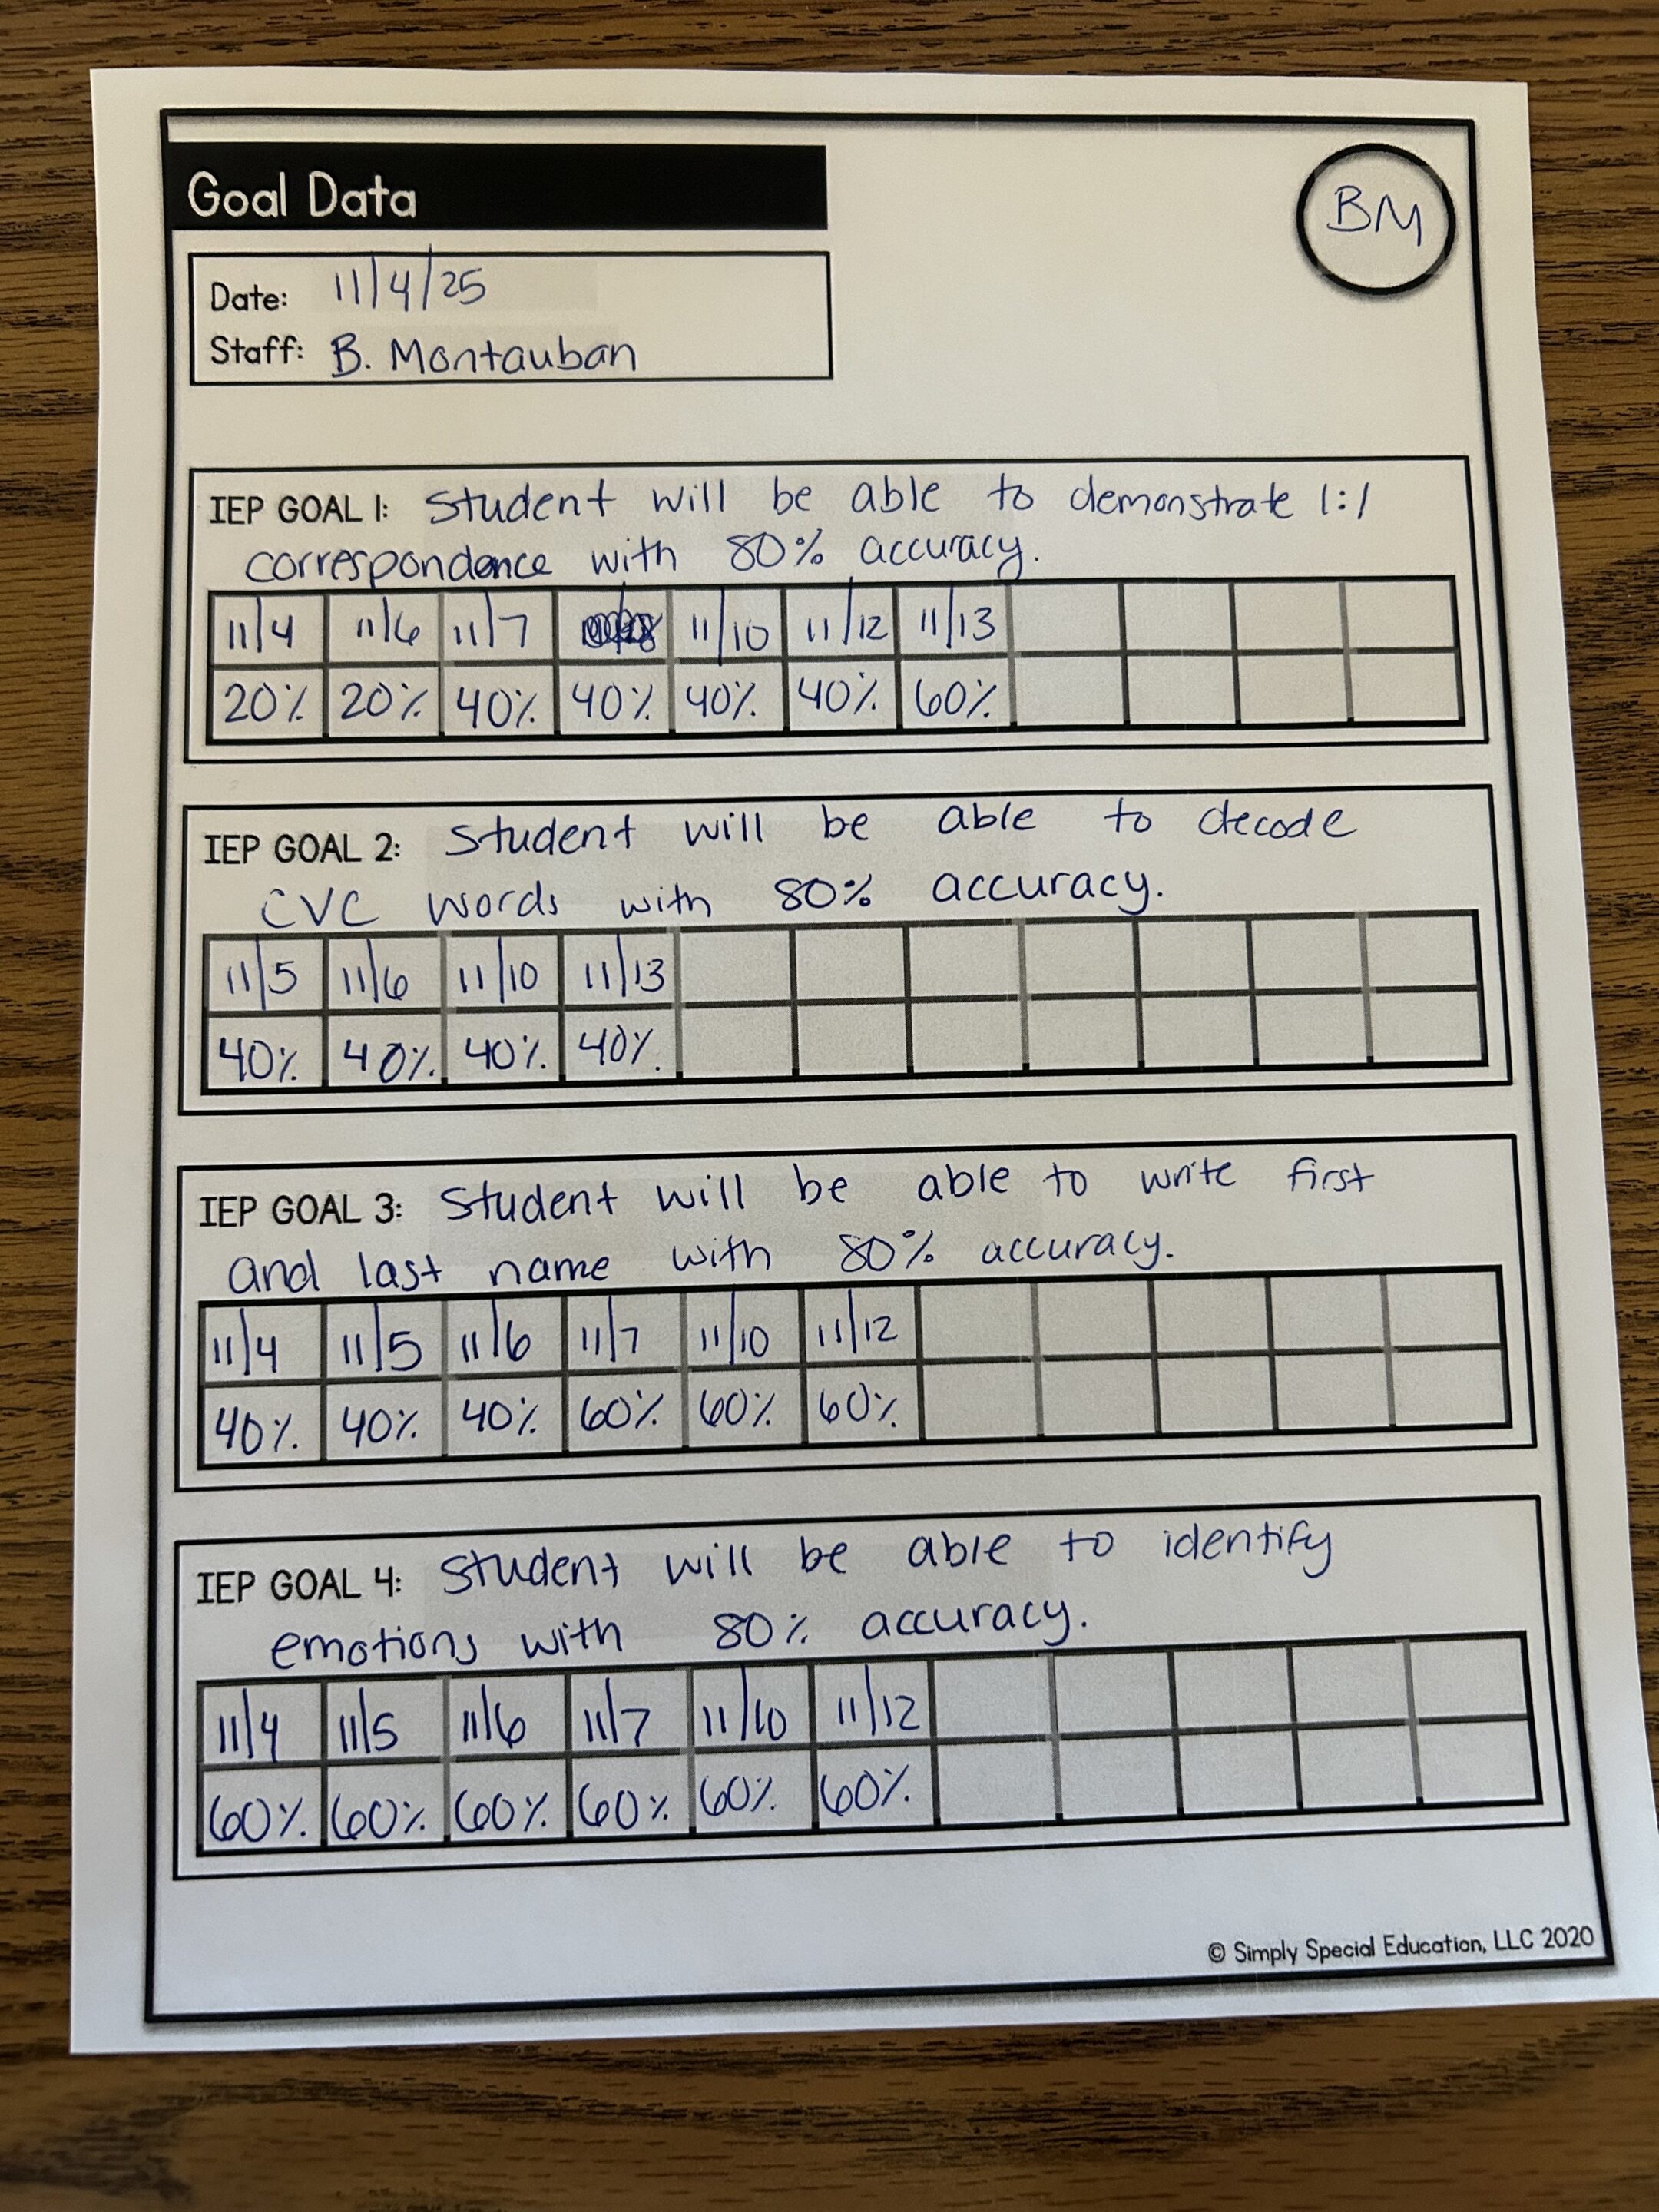 Goal Data
BM
Date: 11/4/25
Staff: B. Montauban
IEP GOAL 1: Student will be able to demonstrate 1:1
correspondence with 80% accuracy.
11/4 11/6 11/7 11/10 11/12 11/13
20% 20% 40% 40% 40% 40% 60%
IEP GOAL 2: Student will be able to decode
CVC words with 80% accuracy.
11/5 11/6 11/10 11/13
40% 40% 40% 40%
IEP GOAL 3: Student will be able to write first
and last name with 80% accuracy.
11/4 11/5 11/6 11/7 11/10 11/12
40% 40% 40% 60% 60% 60%
IEP GOAL 4: Student will be able to identify
emotions with 80% accuracy.
11/4 11/5 11/6 11/7 11/10 11/12
60% 60% 60% 60% 60% 60%
© Simply Special Education, LLC 2020